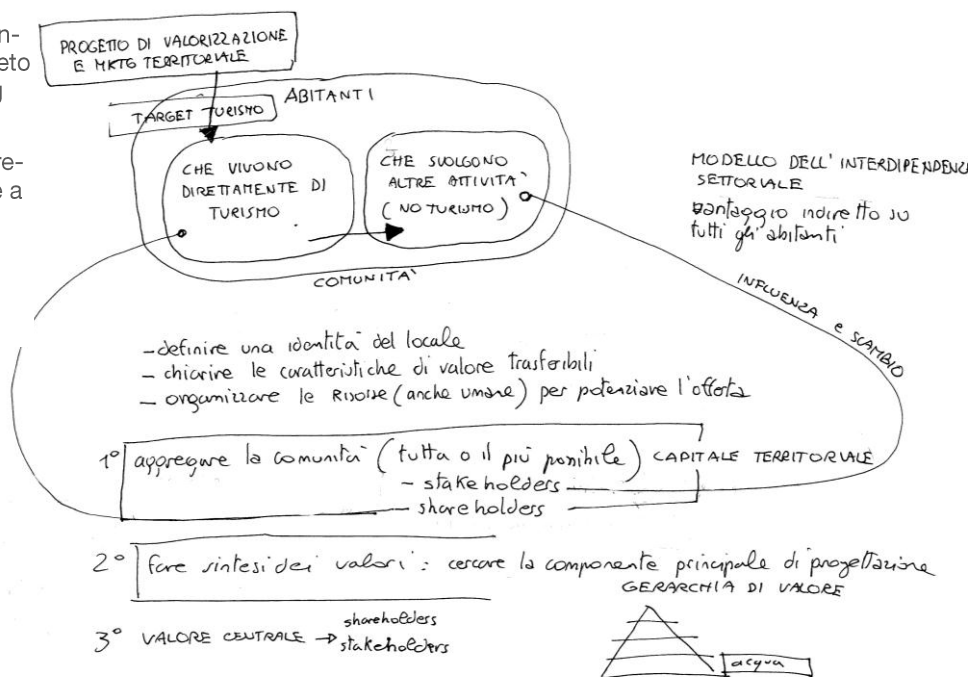 n-
eto
g
re-
e a
PROGETTO DI VALORIZZAZIONE
E MKTG TERRITORIALE
TARGET TURISMO
ABITANTI
CHE VIVONO
DIRETTAMENTE DI
TURISMO
CHE SVOLGONO
ALTRE ATTIVITA'
(NO TURISMO)
COMUNITA'
MODELLO DELL'INTERDIPENDENZ
SETTORIALE
vantaggio indiretto su
tutti gli abitanti
INFLUENZA e SCAMBIO
- definire una identità del locale
- chiarire le caratteristiche di valore trasferibili
- organizzare le Risorse (anche umane) per potenziare l'offerta
1° aggregare la comunità (tutta o il più possibile) CAPITALE TERRITORIALE
- stakeholders
- shareholders
2° fare sintesi dei valori: cercare la componente principale di progettazione
GERARCHIA DI VALORE
3° VALORE CENTRALE → shareholders
stakeholders
acqua